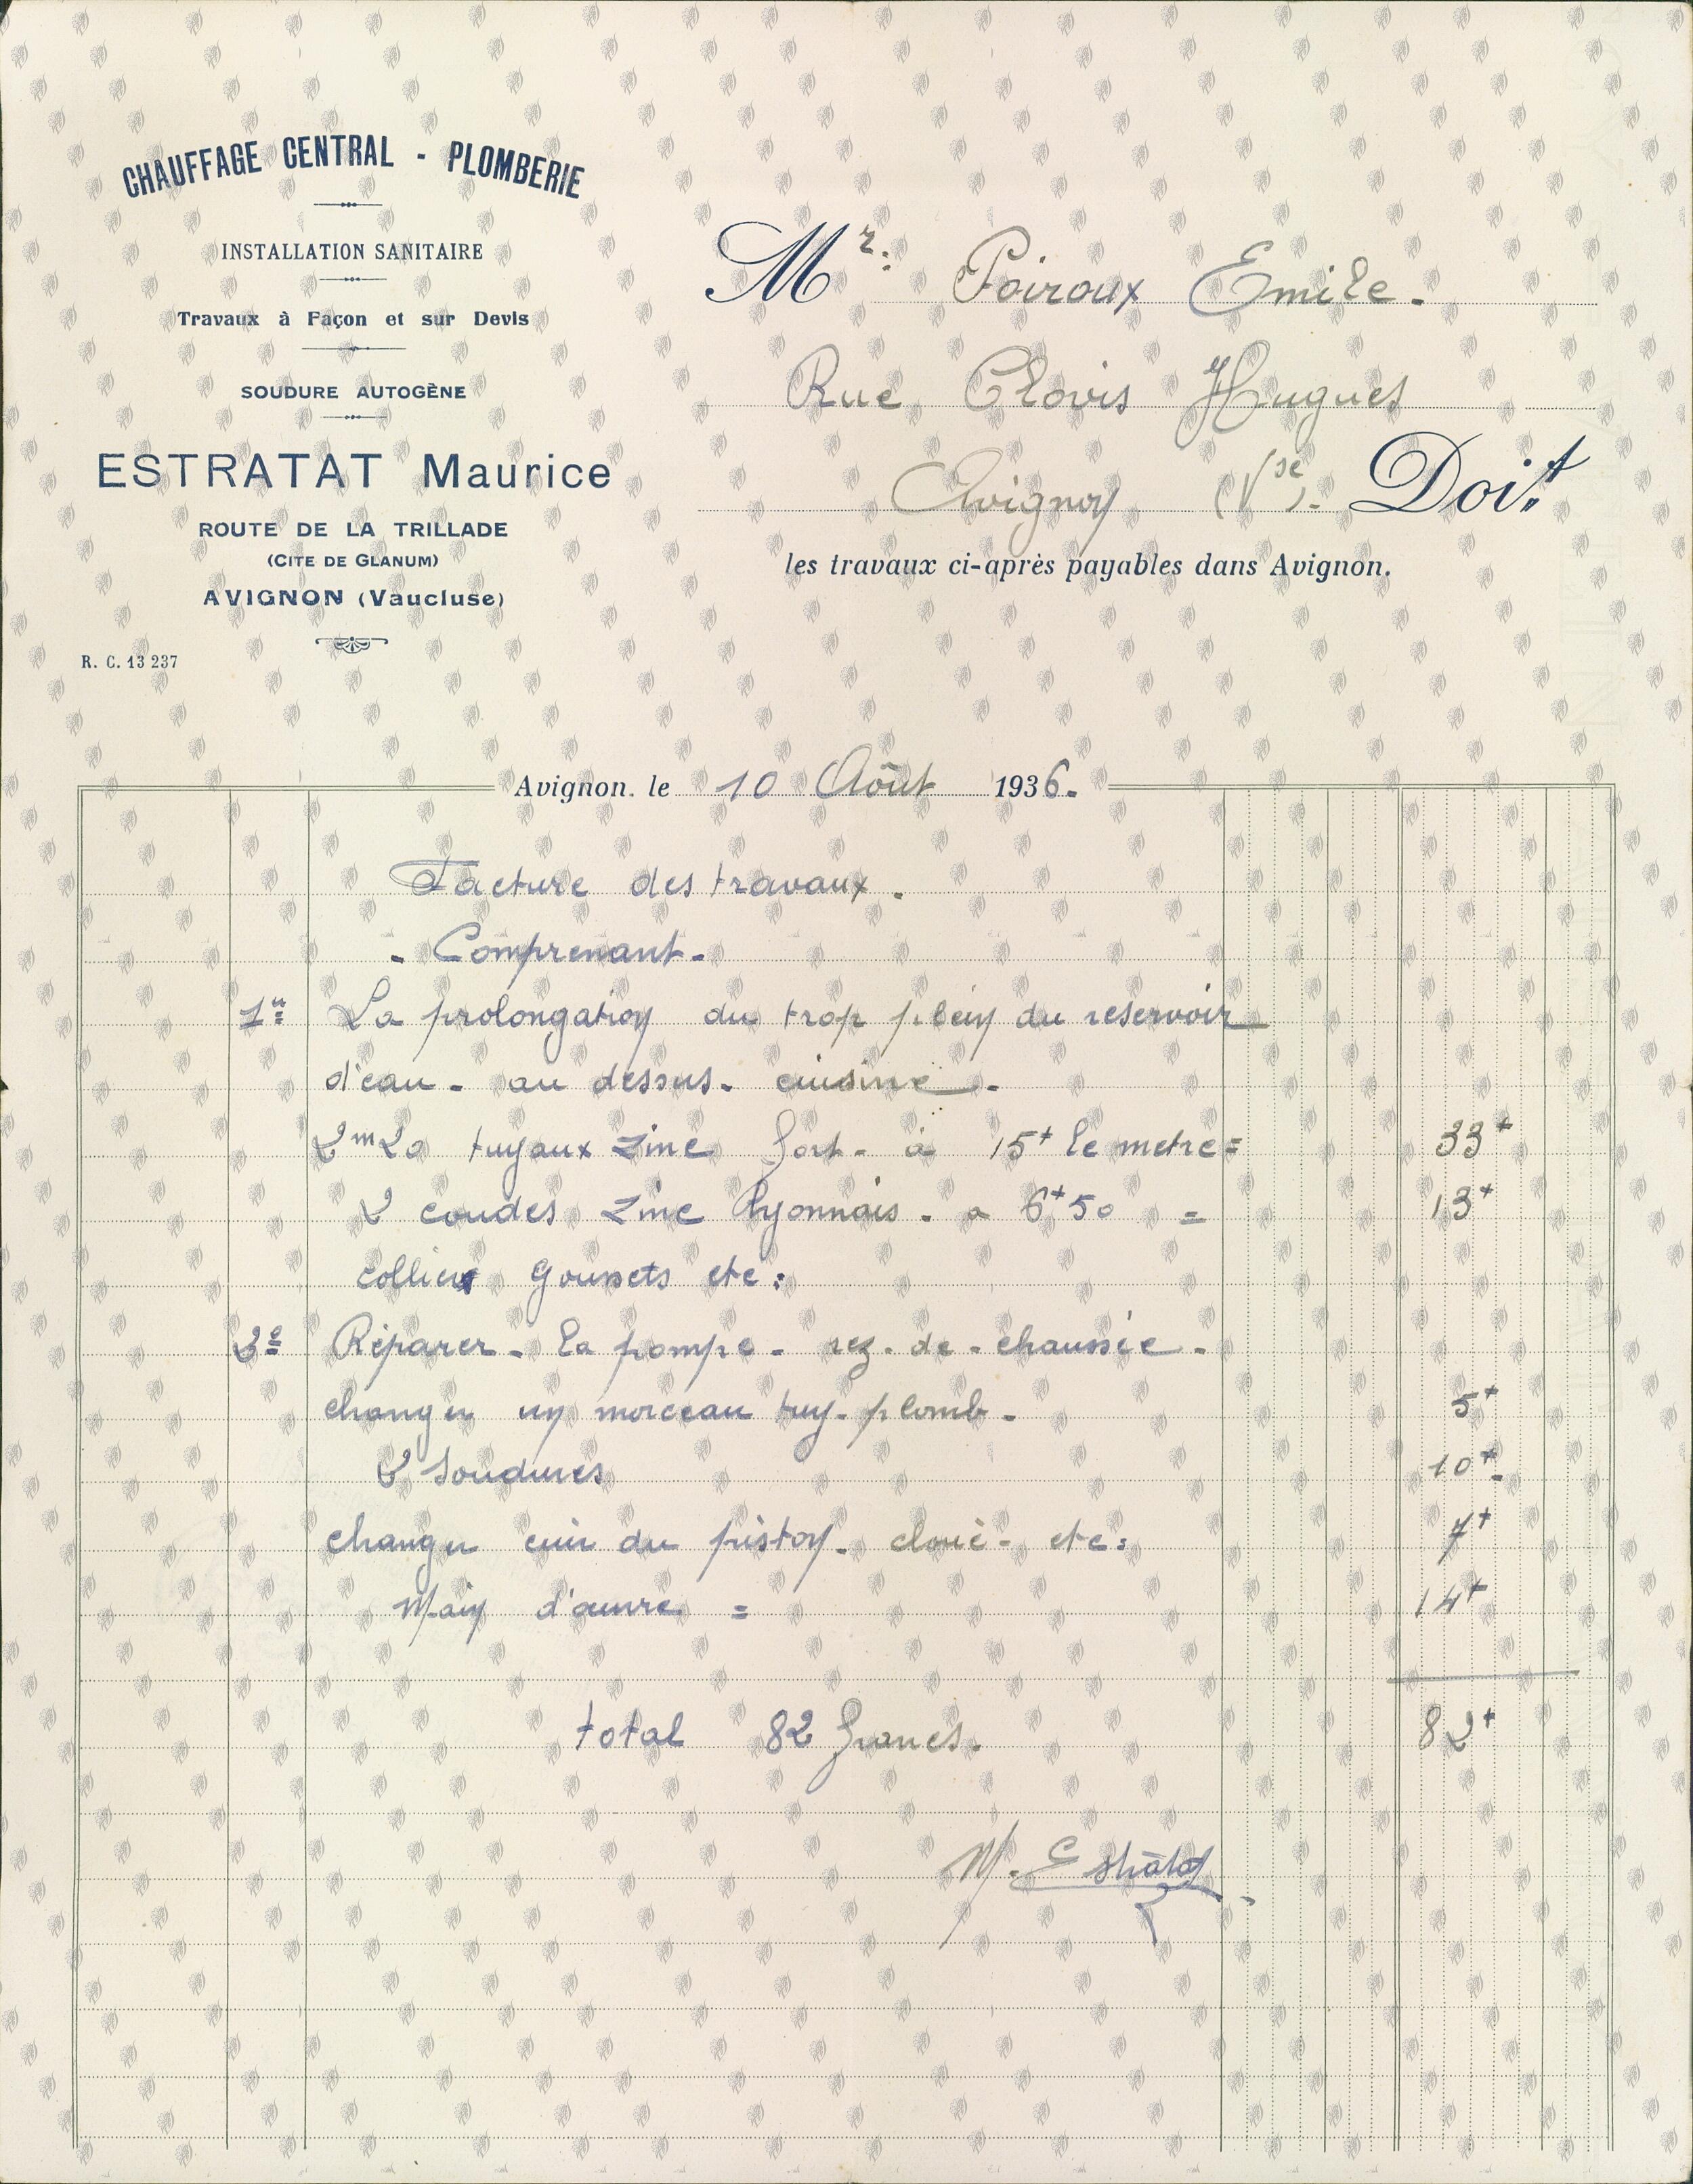 CHAUFFAGE CENTRAL - PLOMBERIE
INSTALLATION SANITAIRE
Travaux à Façon et sur Devis
SOUDURE AUTOGÈNE
ESTRATAT Maurice
ROUTE DE LA TRILLADE
(CITE DE GLANUM)
AVIGNON (Vaucluse)
R. C. 13 237
Mr: Poiroux Emile.
Rue Clovis Hugues
Avignon (Vse). Doit
les travaux ci-après payables dans Avignon.
Avignon. le 10 Août 1936.
Facture des travaux.
- Comprenant -
1° La prolongation du trop plein du reservoir
d'eau - au dessus - cuisine -
2m20 tuyaux zinc fort - à 15f le metre = 33f
2 coudes zinc lyonnais - a 6f50 = 13f
collier goussets etc:
2° Réparer - la pompe - rez-de-chaussée -
changer un morceau tuy-plomb - 5f
2 soudures 10f
changer cuir du piston - etc: 7f
Main d'œuvre = 14f
total 82 francs. 82f
M. Estratat